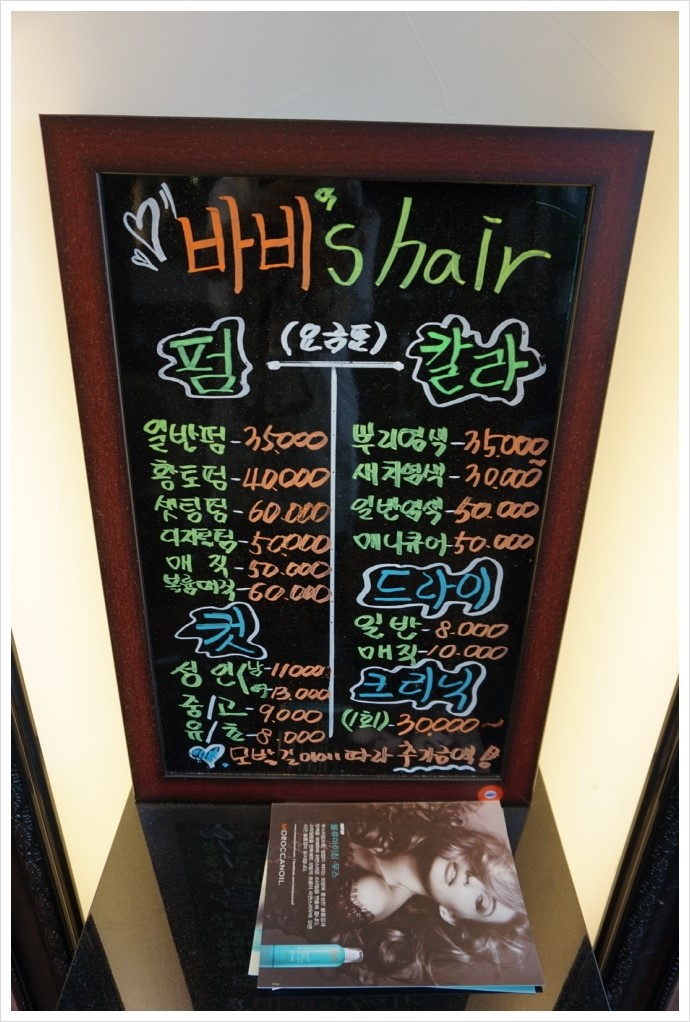 바비's hair
(요금표)
펌
일반펌-35.000
황토펌-40,000
셋팅펌-60.000
디지털펌-50,000
매직-50.000
볼륨매직-60.000
컷
성인(남-11000
여-13.000
중/고-9.000
유/초-8.000
칼라
뿌리염색-35.000~
새치염색-30.000
일반염색-50.000
매니큐어-50.000
드라이
일반-8.000
매직-10.000
크리닉
(1회)-30.000~
모발길이에 따라 추가금액有
NEW
볼류마이징 무스
MOROCCANOIL.